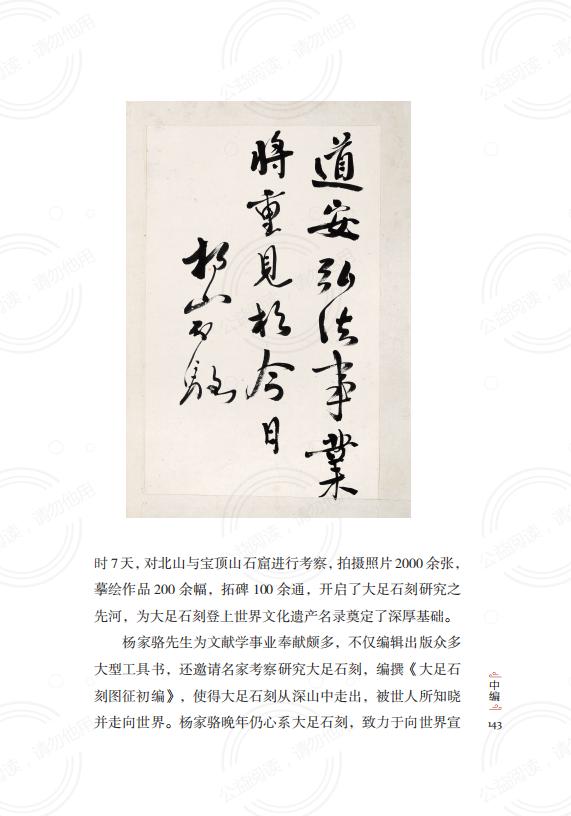 道安弘法事業
將重見於今日
楊家駱
时7天，对北山与宝顶山石窟进行考察，拍摄照片2000余张，
摹绘作品200余幅，拓碑100余通，开启了大足石刻研究之
先河，为大足石刻登上世界文化遗产名录奠定了深厚基础。
杨家骆先生为文献学事业奉献颇多，不仅编辑出版众多
大型工具书，还邀请名家考察研究大足石刻，编撰《大足石
刻图征初编》，使得大足石刻从深山中走出，被世人所知晓
并走向世界。杨家骆晚年仍心系大足石刻，致力于向世界宣
中编
143
公益阅读，请勿他用